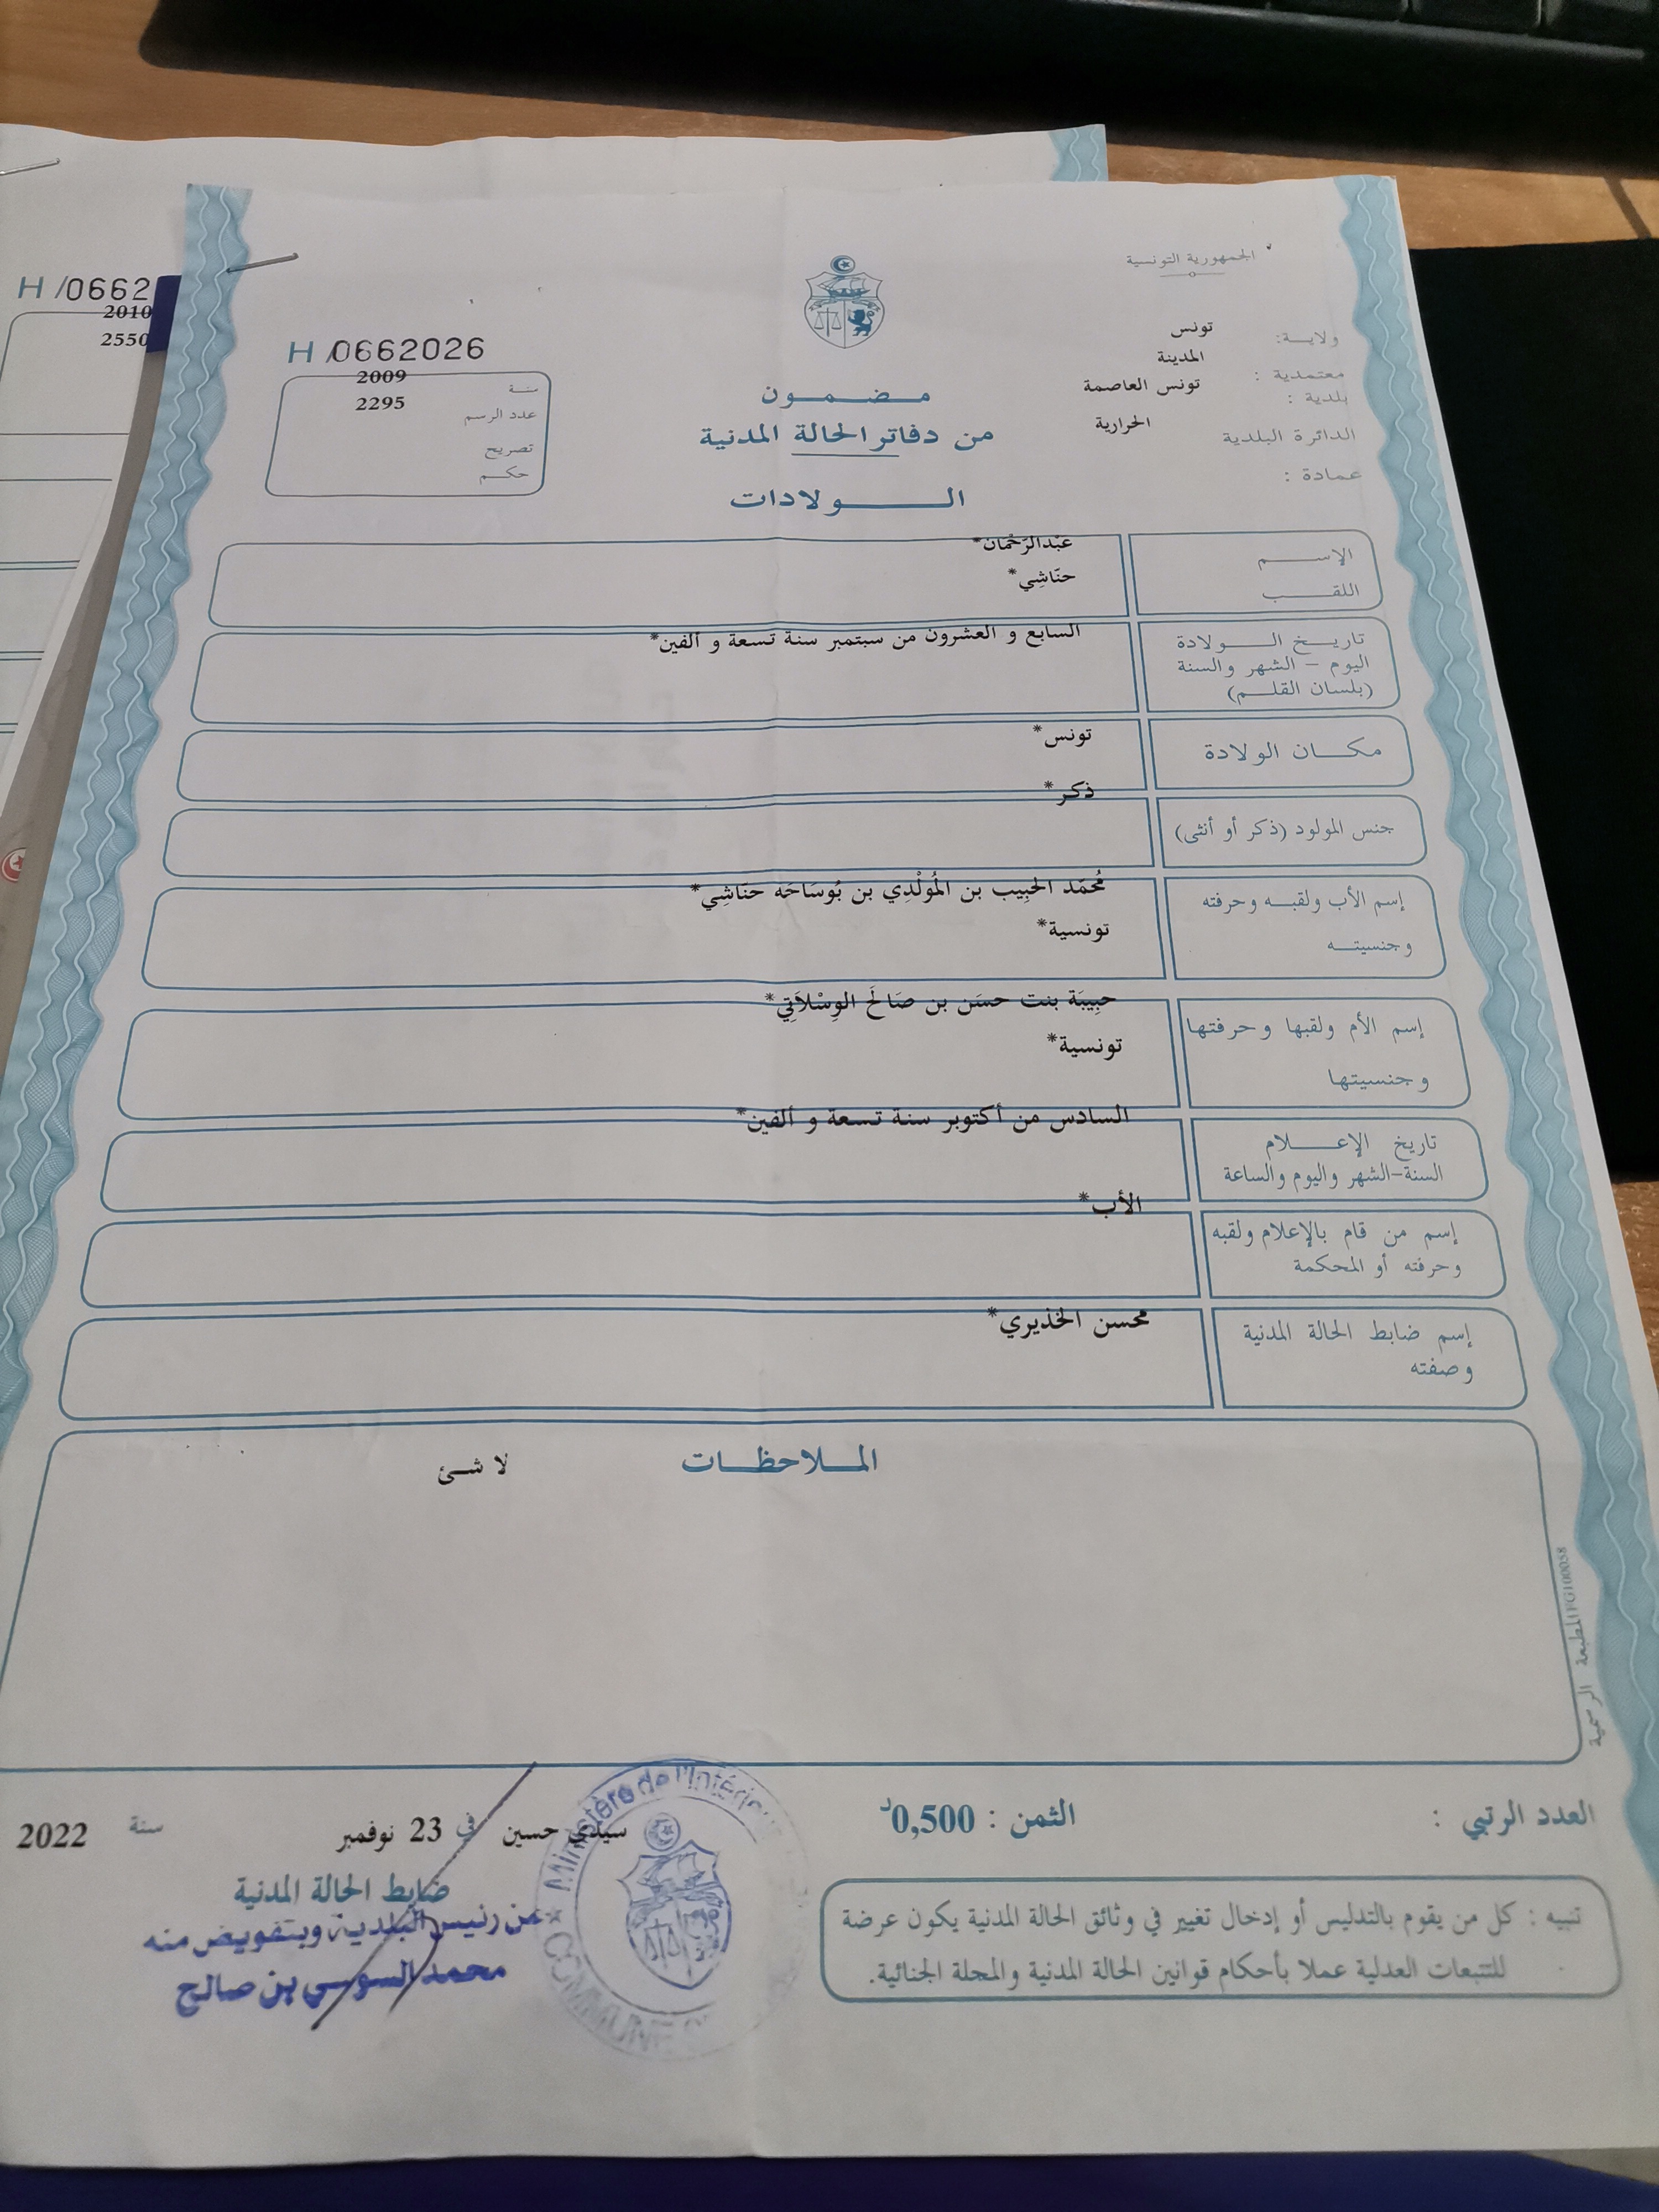 الجمهورية التونسية
ولاية: تونس
معتمدية : المدينة
بلدية : تونس العاصمة
الدائرة البلدية الحرارية
عمادة :
H/0662026
سنة 2009
عدد الرسم 2295
تصريح
حكم
مضمون
من دفاتر الحالة المدنية
الولادات
الإسم عبْدالرَحْمان*
اللقب حنّاشِي*
تاريخ الولادة السابع و العشرون من سبتمبر سنة تسعة و ألفين*
اليوم - الشهر والسنة
(بلسان القلم)
مكان الولادة تونس*
جنس المولود (ذكر أو أنثى) ذكر*
إسم الأب ولقبه وحرفته مُحمّد الحَبِيب بن المُولْدِي بن بُوسَاحَه حنَاشِي*
وجنسيته تونسية*
إسم الأم ولقبها وحرفتها حبِيبَة بنت حسَن بن صَالَح الوِسْلاَتِي*
وجنسيتها تونسية*
تاريخ الإعلام السادس من أكتوبر سنة تسعة و ألفين*
السنة-الشهر واليوم والساعة
إسم من قام بالإعلام ولقبه الأب*
وحرفته أو المحكمة
إسم ضابط الحالة المدنية محسن الخذيري*
وصفته
الملاحظات لا شئ
المطبعة الرسمية FG100058
العدد الرتبي :
الثمن : 0,500د
سيدي حسين في 23 نوفمبر سنة 2022
ضابط الحالة المدنية
عن رئيس البلدية وبتفويض منه
محمد السوسي بن صالح
Ministère de l'Intérieur
COMMUNE
تنبيه : كل من يقوم بالتدليس أو إدخال تغيير في وثائق الحالة المدنية يكون عرضة
للتتبعات العدلية عملا بأحكام قوانين الحالة المدنية والمجلة الجنائية.
H/0662
2010
2550